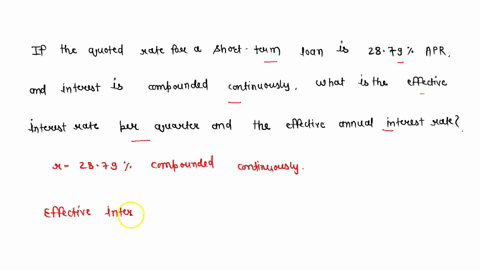 If the quoted rate for a short-term loan is 28.79% APR,
and interest is compounded continuously, what is the effective
interest rate per quarter and the effective annual interest rate?
r = 28.79% compounded continuously.
Effective Inter